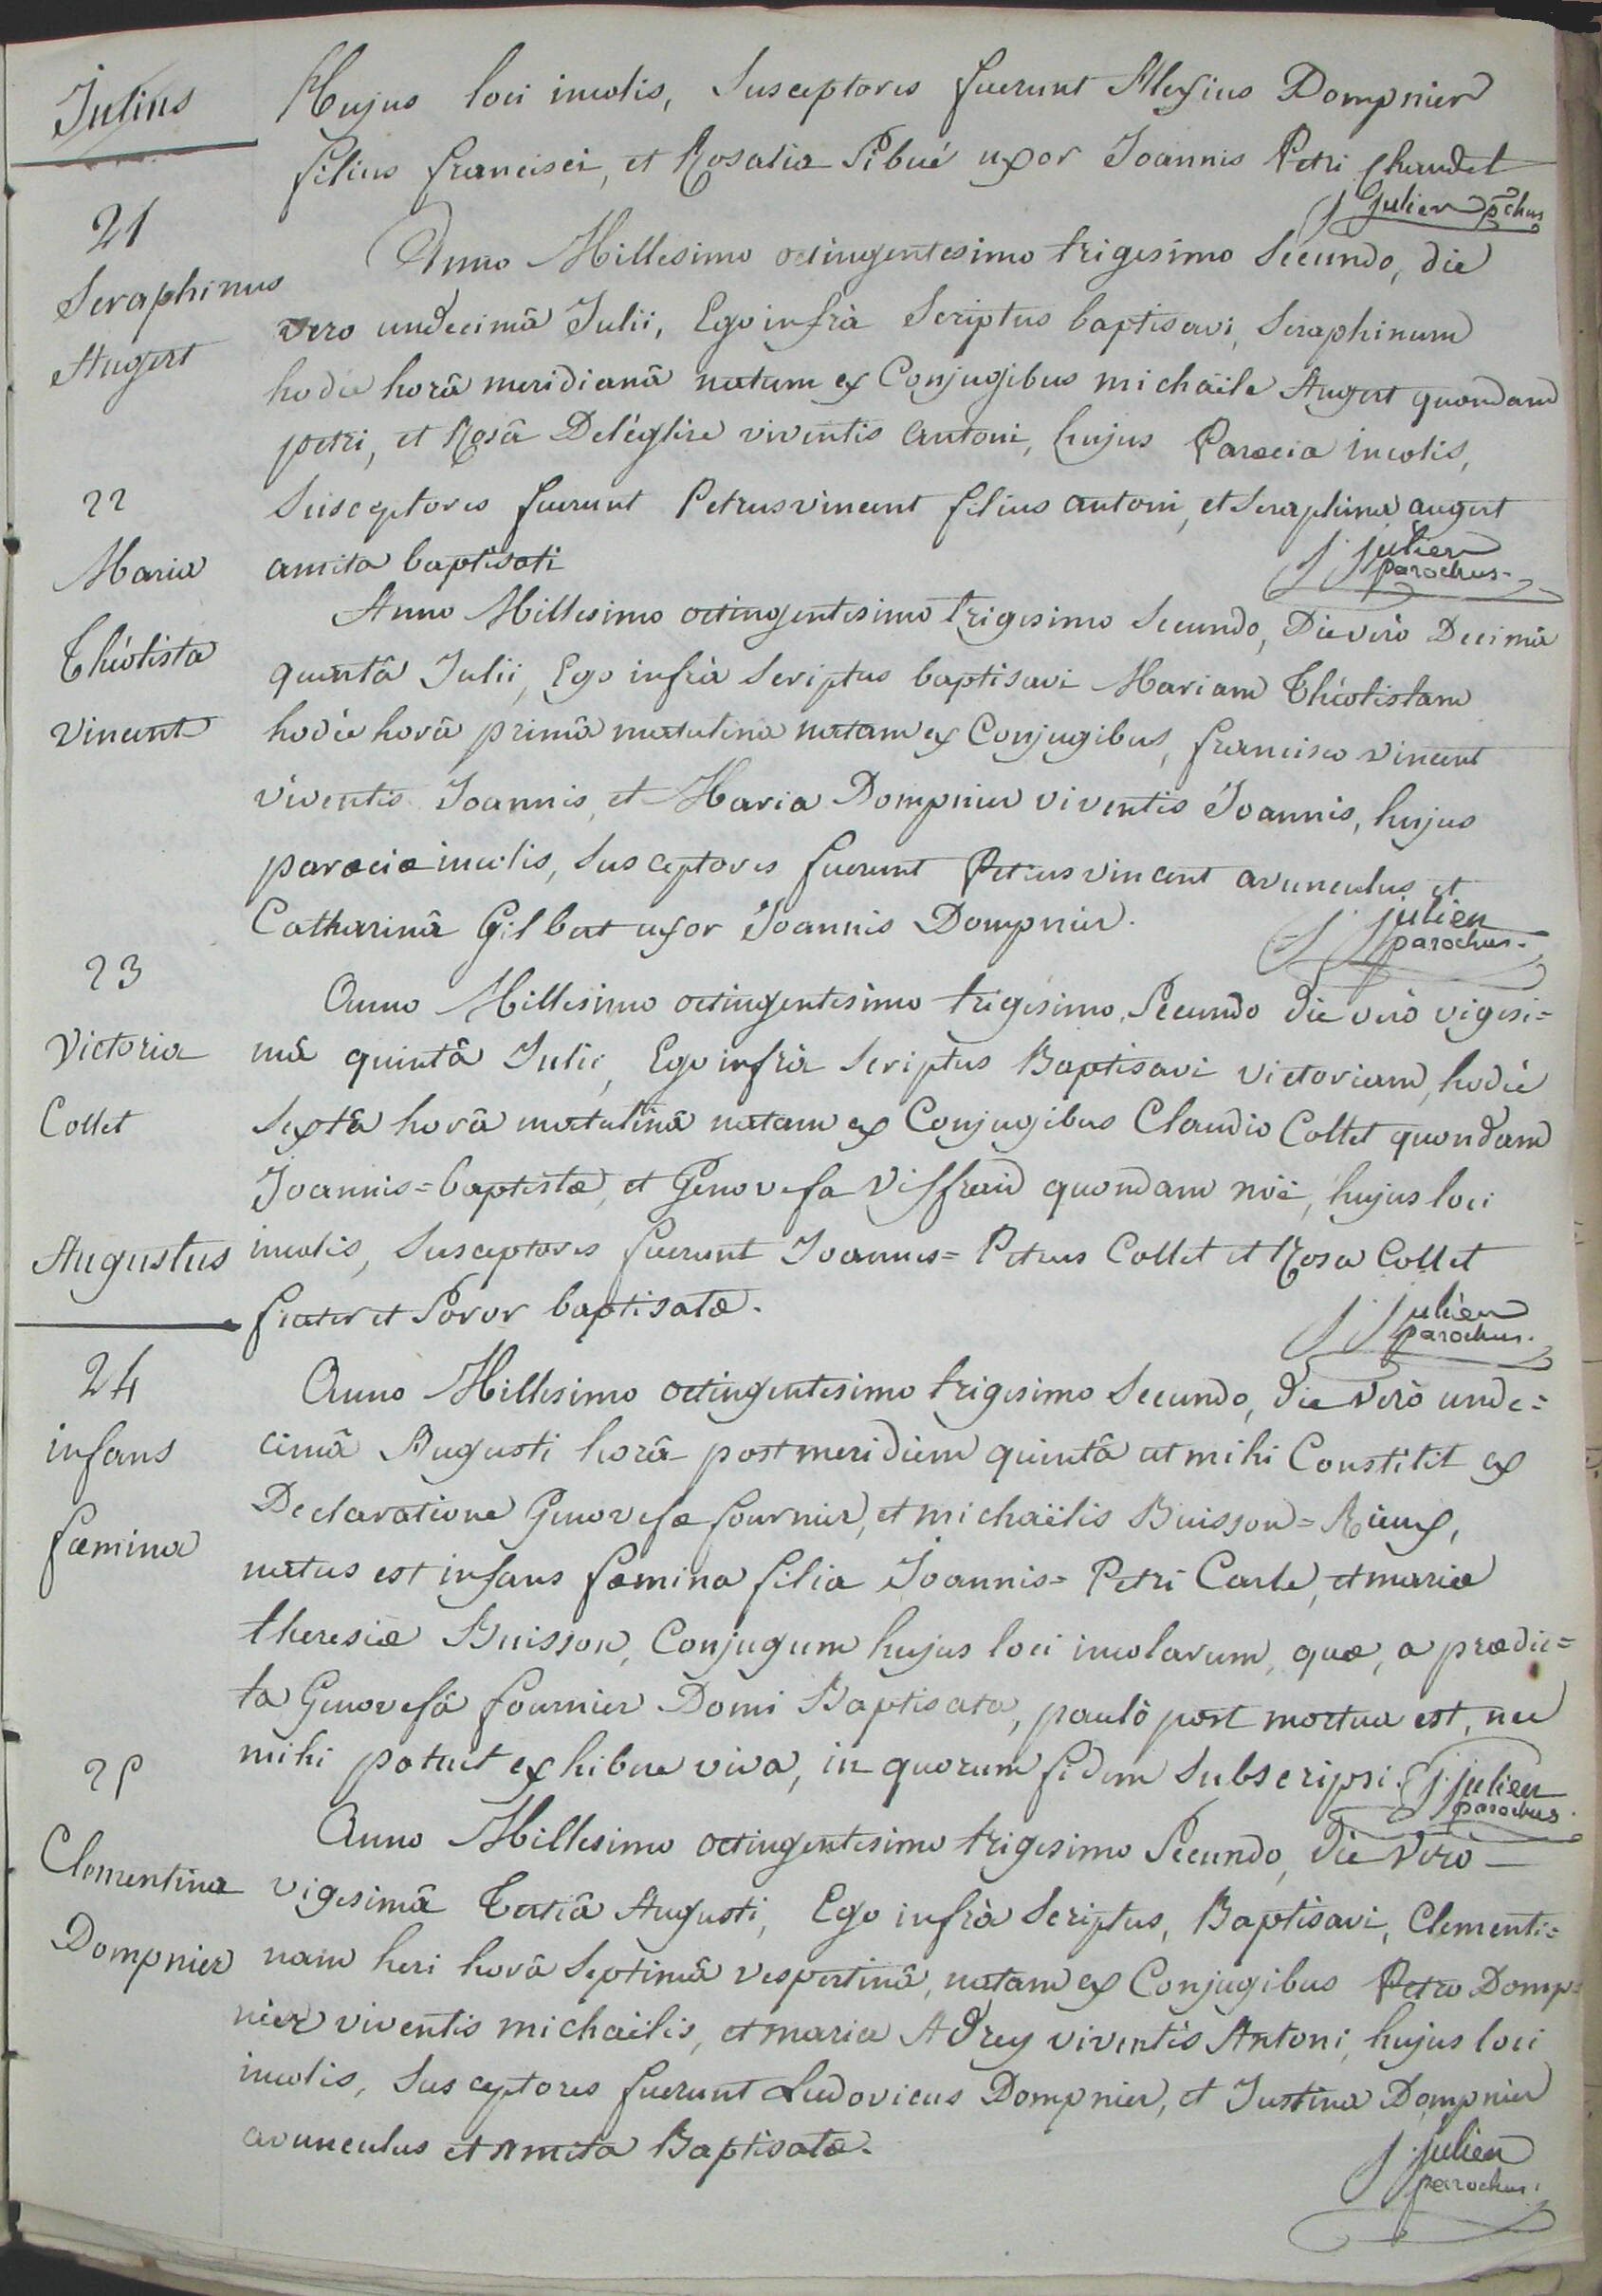 Julius
Hujus loci incolis, Susceptores fuerunt Alexius Dompnier
filius francisci, et Rosalia Sibué uxor Joannis Petri Chaudet
J Julien pchus
21
Seraphinus
Augert
Anno Millesimo octingentesimo trigesimo Secundo, die
vero undecimâ Julii, Ego infrà Scriptus baptisavi, Seraphinum
hodie horâ meridianâ natum ex Conjugibus michaële Augert quondam
petri, et Rosâ Deléglise viventis antoni, hujus Paroecia incolis,
Susceptores fuerunt Petrus vincent filius antoni, et Seraphina augert
amita baptisati
J. julien
parochus.
22
Maria
Théotista
vincent
Anno Millesimo octingentesimo trigesimo Secundo, Die verò Decimâ
quintâ Julii, Ego infrà Scriptus baptisavi Mariam Théotistam
hodie horâ primâ matutina natam ex Conjugibus, francisco vincent
viventis Joannis, et Maria Dompnier viventis Joannis, hujus
paroeciæ incolis, Susceptores fuerunt Petrus vincent avunculus et
Catharinâ Gilbert uxor Joannis Dompnier.
J. julien
parochus.
23
Victoria
Collet
Anno Millesimo octingentesimo trigesimo, Secundo die verò vigesi=
mâ quintâ Julii, Ego infrà Scriptus Baptisavi victoriam, hodiè
Sextâ horâ matutinâ natam ex Conjugibus Claudio Collet quondam
Joannis=baptistæ, et Genovefa Viffraid quondam noë, hujus loci
incolis, Susceptores fuerunt Joannes=Petrus Collet et Rosa Collet
frater et Soror baptisatæ.
J. julien
parochus.
Augustus
24
infans
fæmina
Anno Millesimo octingentesimo trigesimo Secundo, die verò unde=
cimâ Augusti horâ postmeridiem quintâ ut mihi Constitit ex
Declaratione Genovefæ fournier, et michaëlis Buisson=Rieux,
natus est infans fæmina filia Joannis=Petri Carle, et mariæ
theresiæ Buisson, Conjugum hujus loci incolarum, quæ, a prædic=
ta Genovefâ fournier Domi Baptisata, paulò post mortua est, nec
mihi potuit exhibere viva, in quorum fidem Subscripsi. J. julien
parochus.
25
Clementina
Dompnier
Anno Millesimo octingentesimo trigesimo Secundo, die Verò
vigesimâ Tertiâ Augusti, Ego infrà Scriptus, Baptisavi, Clementi=
nam heri horâ Septimâ vespertinâ, natam ex Conjugibus Petro Domp=
nier viventis michaëlis, et maria Adrey viventis Antoni, hujus loci
incolis, Susceptores fuerunt Ludovicus Dompnier, et Justina Dompnier
avunculus et Amita Baptisatæ.
J. julien
parochus.